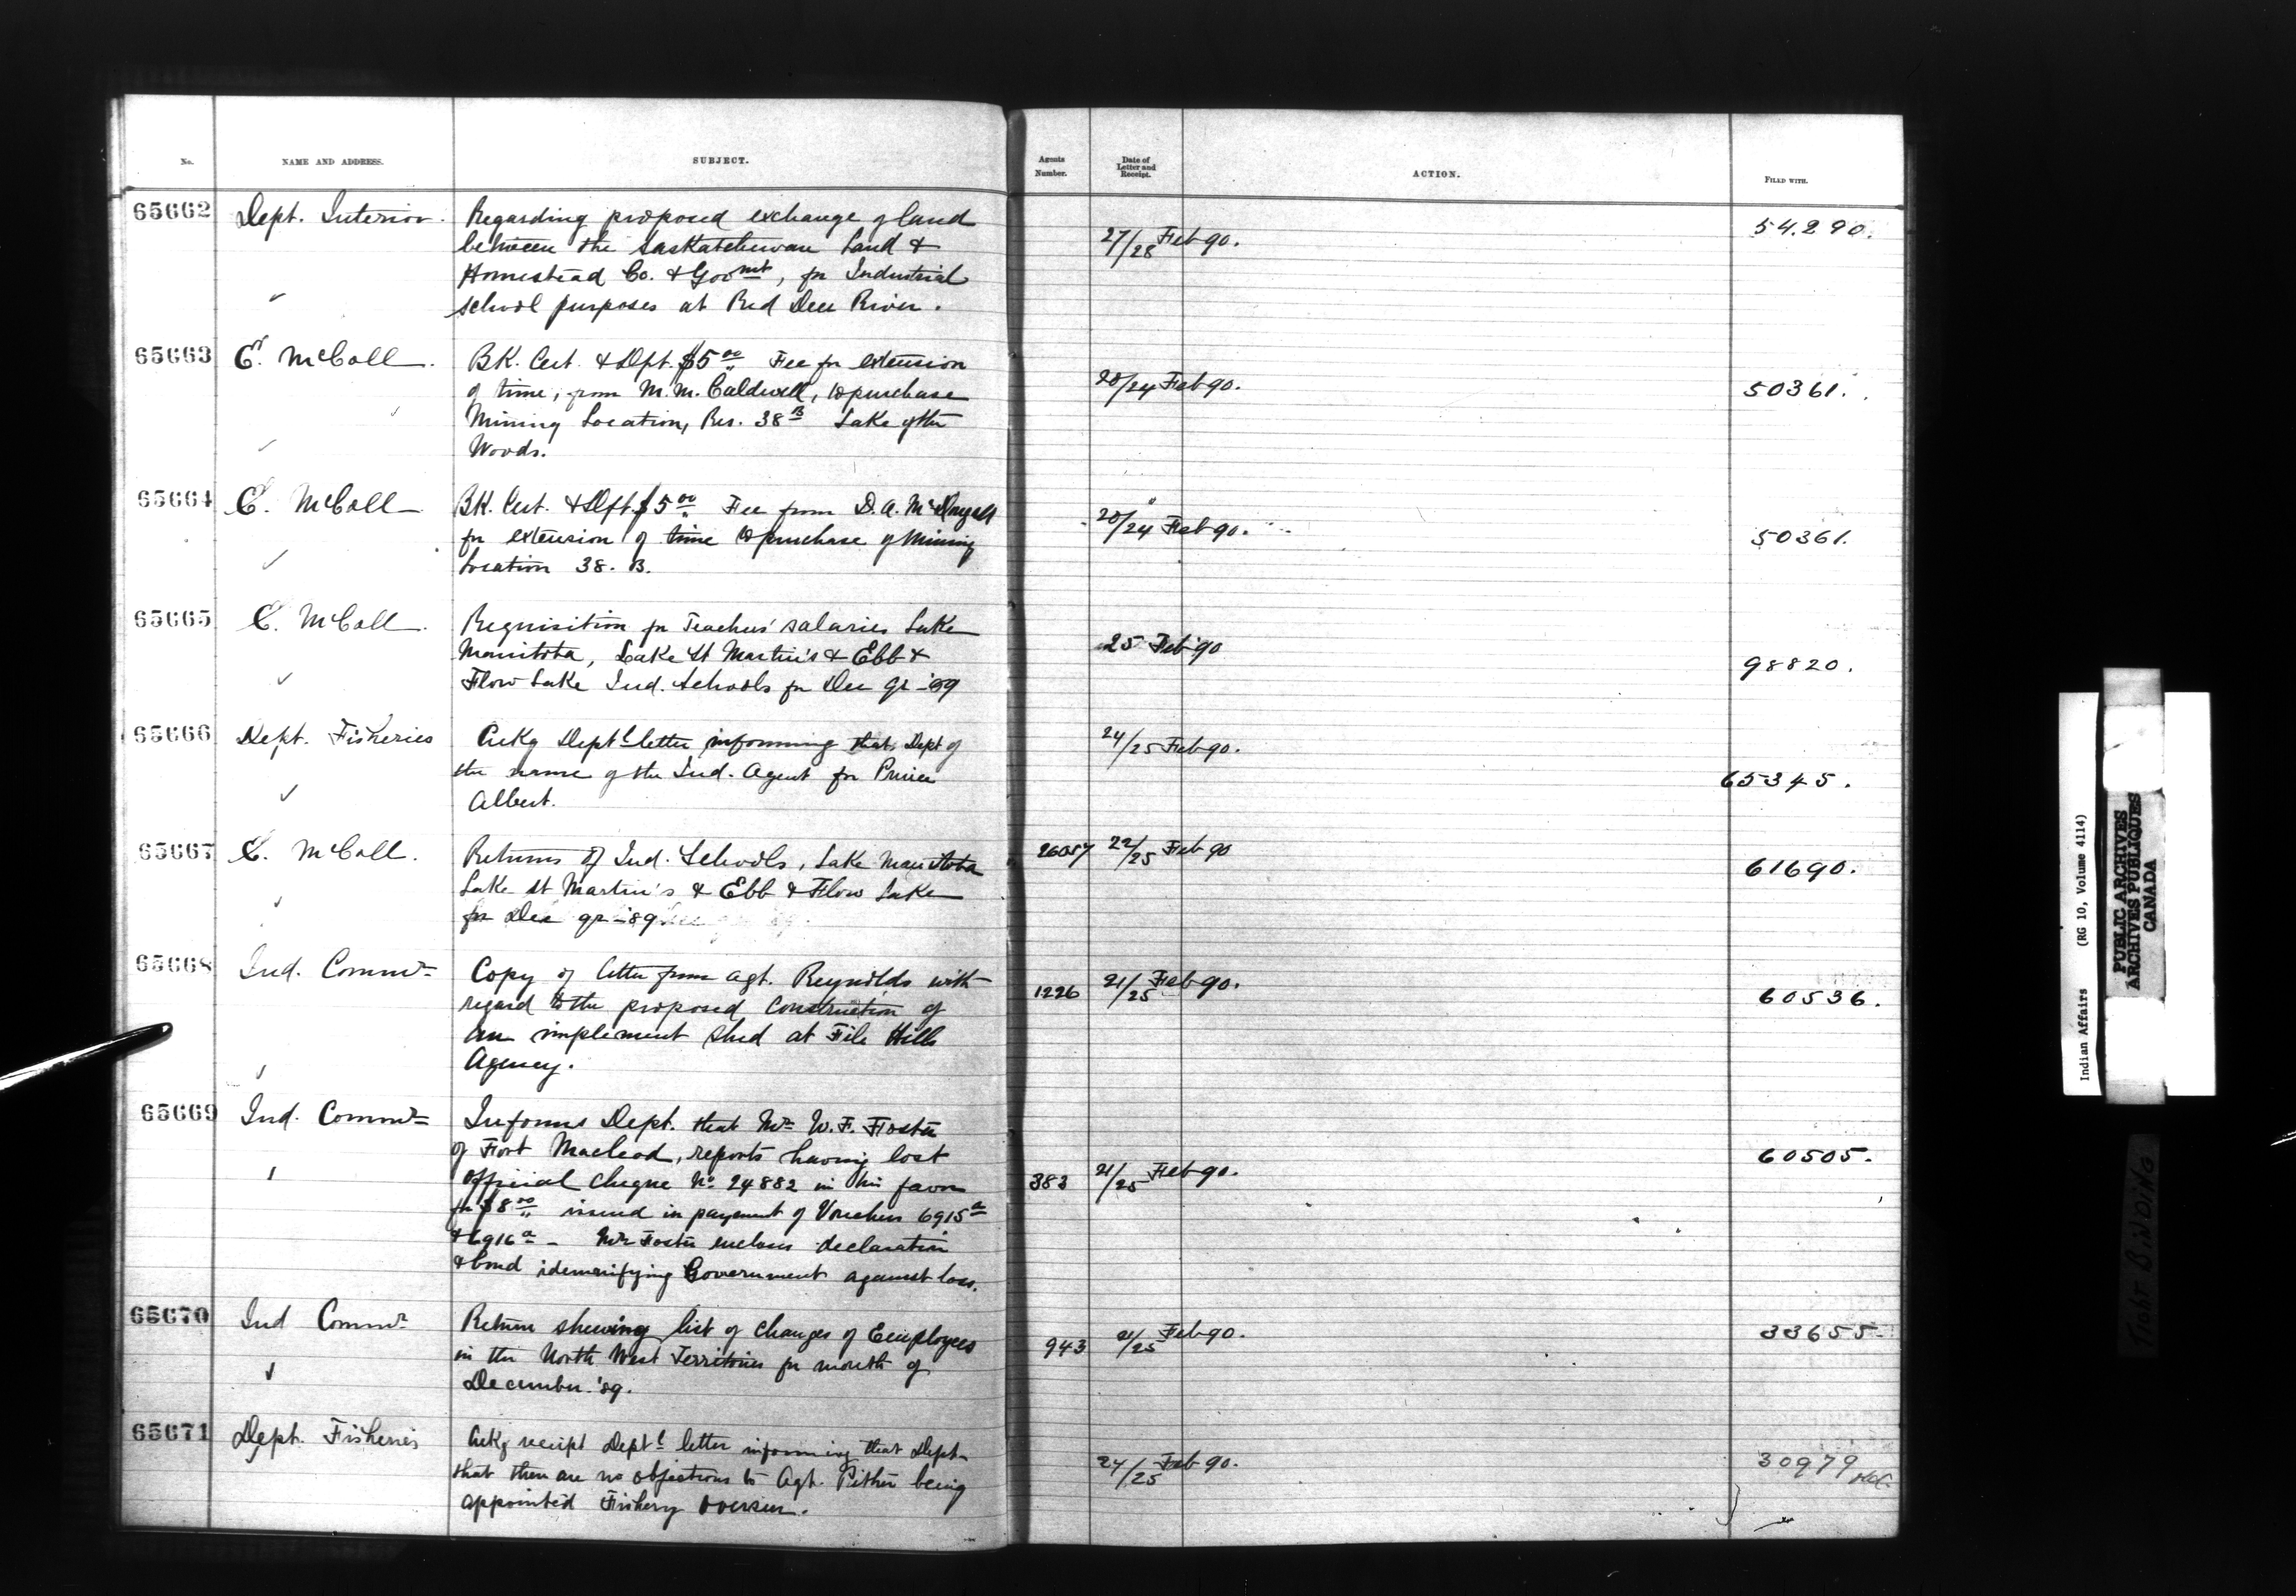 No.
NAME AND ADDRESS.
SUBJECT.
Agents
Number.
Date of
Letter and
Receipt.
ACTION.
FILED WITH.
65662
Dept. Interior.
Regarding proposed exchange of land
between the Saskatchewan Land &
Homestead Co. & Govmt, for Industrial
School purposes at Red Deer River.
27/28 Feb 90.
54.290.
65663
E. McColl.
BK. Cert. & Dft. $5.00 Fee for extension
of time, from M.M. Caldwell, to purchase
Mining Location, Res. 38B Lake of the
Woods.
20/24 Feb 90.
50361.
65664
E. McColl
BK. Cert. & Dft. $5.00 Fee from D.A. McDougall
for extension of time to purchase of Mining
Location 38. B.
20/24 Feb 90.
50361.
65665
E. McColl.
Requisition for Teachers' salaries Lake
Manitoba, Lake St Martin's & Ebb &
Flow Lake Ind. Schools for Dec qr - '89
25 Feb '90
98820.
65666
Dept. Fisheries
Ackg Deptl letter informing that Dept of
the name of the Ind. Agent for Prince
Albert.
24/25 Feb 90.
65345.
65667
E. McColl.
Returns of Ind. Schools, Lake Manitoba
Lake St Martin's & Ebb & Flow Lake
for Dec qr - '89
26057
22/25 Feb 90
61690.
65668
Ind. Commr
Copy of letter from Agt. Reynolds with
regard to the proposed construction of
an implement shed at File Hills
Agency.
1226
21/25 Feb 90.
60536.
65669
Ind. Commr
Informs Dept. that Mr W.F. Foster
of Fort Macleod, reports having lost
official cheque No 24882 in his favor
for $8.00 issued in payment of Vouchers 6915a
& 6916a - Mr Foster encloses declaration
& bond idemnifying Government against loss.
383
21/25 Feb 90.
60505.
65670
Ind Commr
Return shewing list of changes of Employees
in the North West Territories for month of
December '89.
943
21/25 Feb 90.
33655-
65671
Dept. Fisheries
Ackg receipt Deptl letter informing that Dept.
that there are no objections to Agt. Pither being
appointed Fishery Overseer.
24/25 Feb 90.
30979
Indian Affairs (RG 10, Volume 4114)
PUBLIC ARCHIVES
ARCHIVES PUBLIQUES
CANADA
TIGHT BINDING